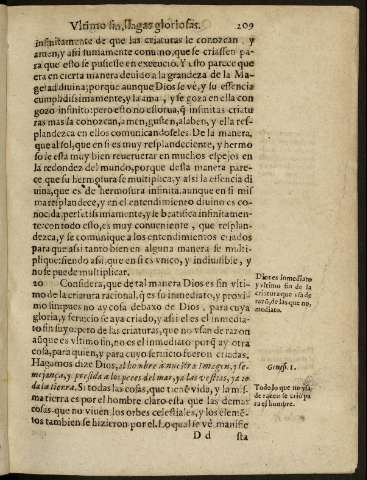 Vltimo fin, llagas gloriosas. 209
infinitamente de que las criaturas le conozcan y
amen, y assi sumamente conuino, que se criassen pa-
ra que esto se pusiesse en execució. Y esto parece que
era en cierta manera deuido a la grandeza de la Ma-
gestad diuina; porque aunque Dios se vé, y su essencia
cumplidissimamente, y la ama, y se goza en ella con
gozo infinito: pero esto no estorua, q̃ infinitas criatu
ras mas la conozcan, amen, gusten, alaben, y ella res-
plandezca en ellos comunicandoseles. De la manera,
que al sol, que en si es muy resplandeciente, y hermo
so le està muy bien reuerberar en muchos espejos en
la redondez del mundo, porque desta manera pare-
ce que su hermosura se multiplica, y assi la essencia di
uina, que es de hermosura infinita, aunque en si mis
ma resplandece, y en el entendimiento diuino es co-
nocida perfetissimamente, y se beatifica infinitamen-
te con todo esto, es muy conueniente, que resplan-
dezca, y se comunique a los entendimientos criados
para que assi tambien en alguna manera se multi-
plique: siendo assi, que en si es vnico, y indiuisible, y
no se puede multiplicar.
20 Considera, que de tal manera Dios es fin vlti-
mo de la criatura racional, q̃ es su inmediato, y proxi
mo fin: pues no ay cosa debaxo de Dios, para cuya
gloria, y seruicio se aya criado, y assi el es el inmedia-
to fin suyo: pero de las criaturas, que no vsan de razon
aũque es vltimo fin, no es el inmediato porq̃ ay otra
cosa, para quien, y para cuyo seruicio fueron criadas.
Hagamos dize Dios, al hombre à nuestra Imagen, y se-
mejança, y presida a los peces del mar, y a las bestias, y a to
da la tierra. Si todas las cosas, que tienē vida, y la mis
ma tierra es por el hombre claro està que las demas
cosas que no viuen los orbes celestiales, y los elemē-
tos tambien se hizieron por el. Lo qual se vè manifie
D d sta
Dios es inmediato
y vltimo fin de la
criatura que vsa de
razõ, de las que no,
mediato.
Genes. 1.
Todo lo que no vsa
de razon se criò pa
ra el hombre.